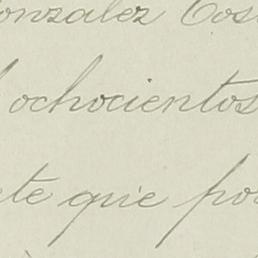 onzalez Cos
ochocientos
te que po